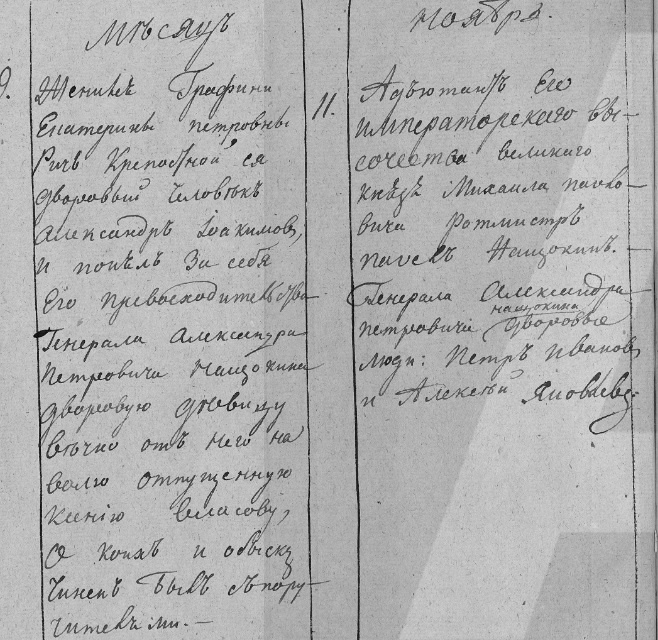 Мѣсяцъ
9.
Женихъ Графини
Екатерины петровны
Рич Крепостной ея
дворовый Человѣкъ
Александръ Іоакимовъ,
и понялъ за себя
Его превосходительства
Генерала Александра
Петровича Нащокина
дворовую дѣвицу
вѣчно отъ него на
волю отпущенную
Ксенію Власову,
О коихъ и обыскъ
Чиненъ былъ съ пору-
чительми. —
Ноября.
11.
Адъютантъ Его
императорскаго вы-
сочества великаго
князя Михаила павло-
вича Ротмистръ
павелъ Нащокинъ. —
Генерала Александра
петровича Нащокина дворовые
люди: Петръ Ивановъ
и Алексѣй Яковлевъ.